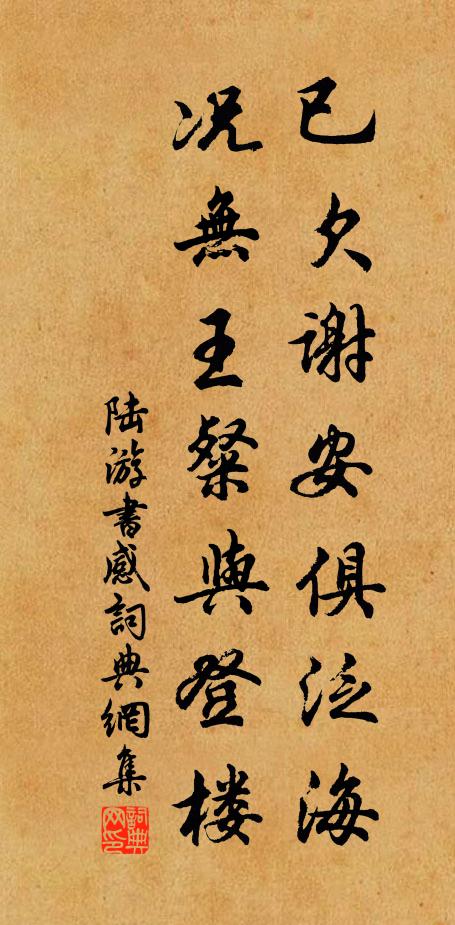 已欠謝安俱泛海
况無王粲與登楼
陆游書感詞典網集
詞典网印